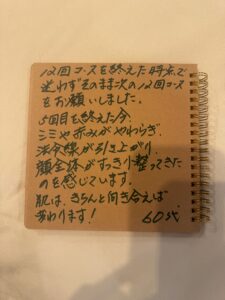 12回コースを終えた時点で
迷わずそのまま次の12回コース
をお願いしました。
5回目を終えた今、
シミや赤みがやわらぎ、
法令線が引き上がり、
顔全体がすっきり整ってきた
のを感じています。
肌は、きちんと向き合えば、
変わります！ 60代